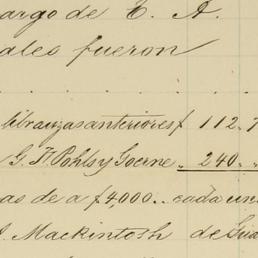 argo de E. A.
ales fueron
libranzas anteriores £ 112.7
G. H. Pohls y Goerne 240
as de a £4,000.. cada un
J. Mackintosh de Gua